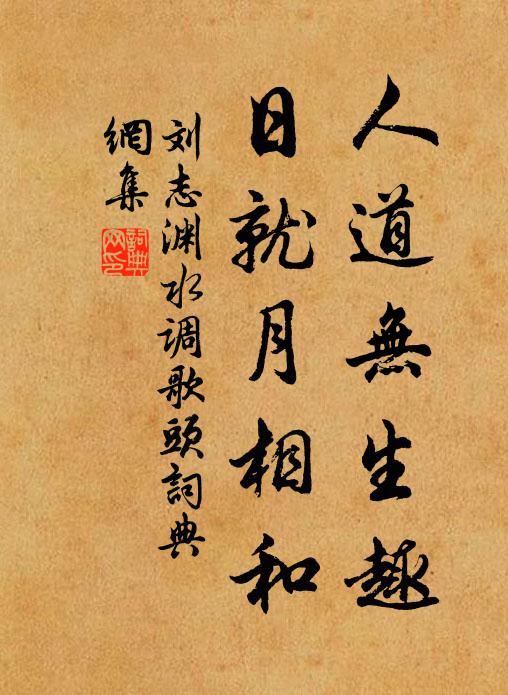 人道無生趣
日就月相和
刘志渊水调歌頭詞典
網集
詞典
网印